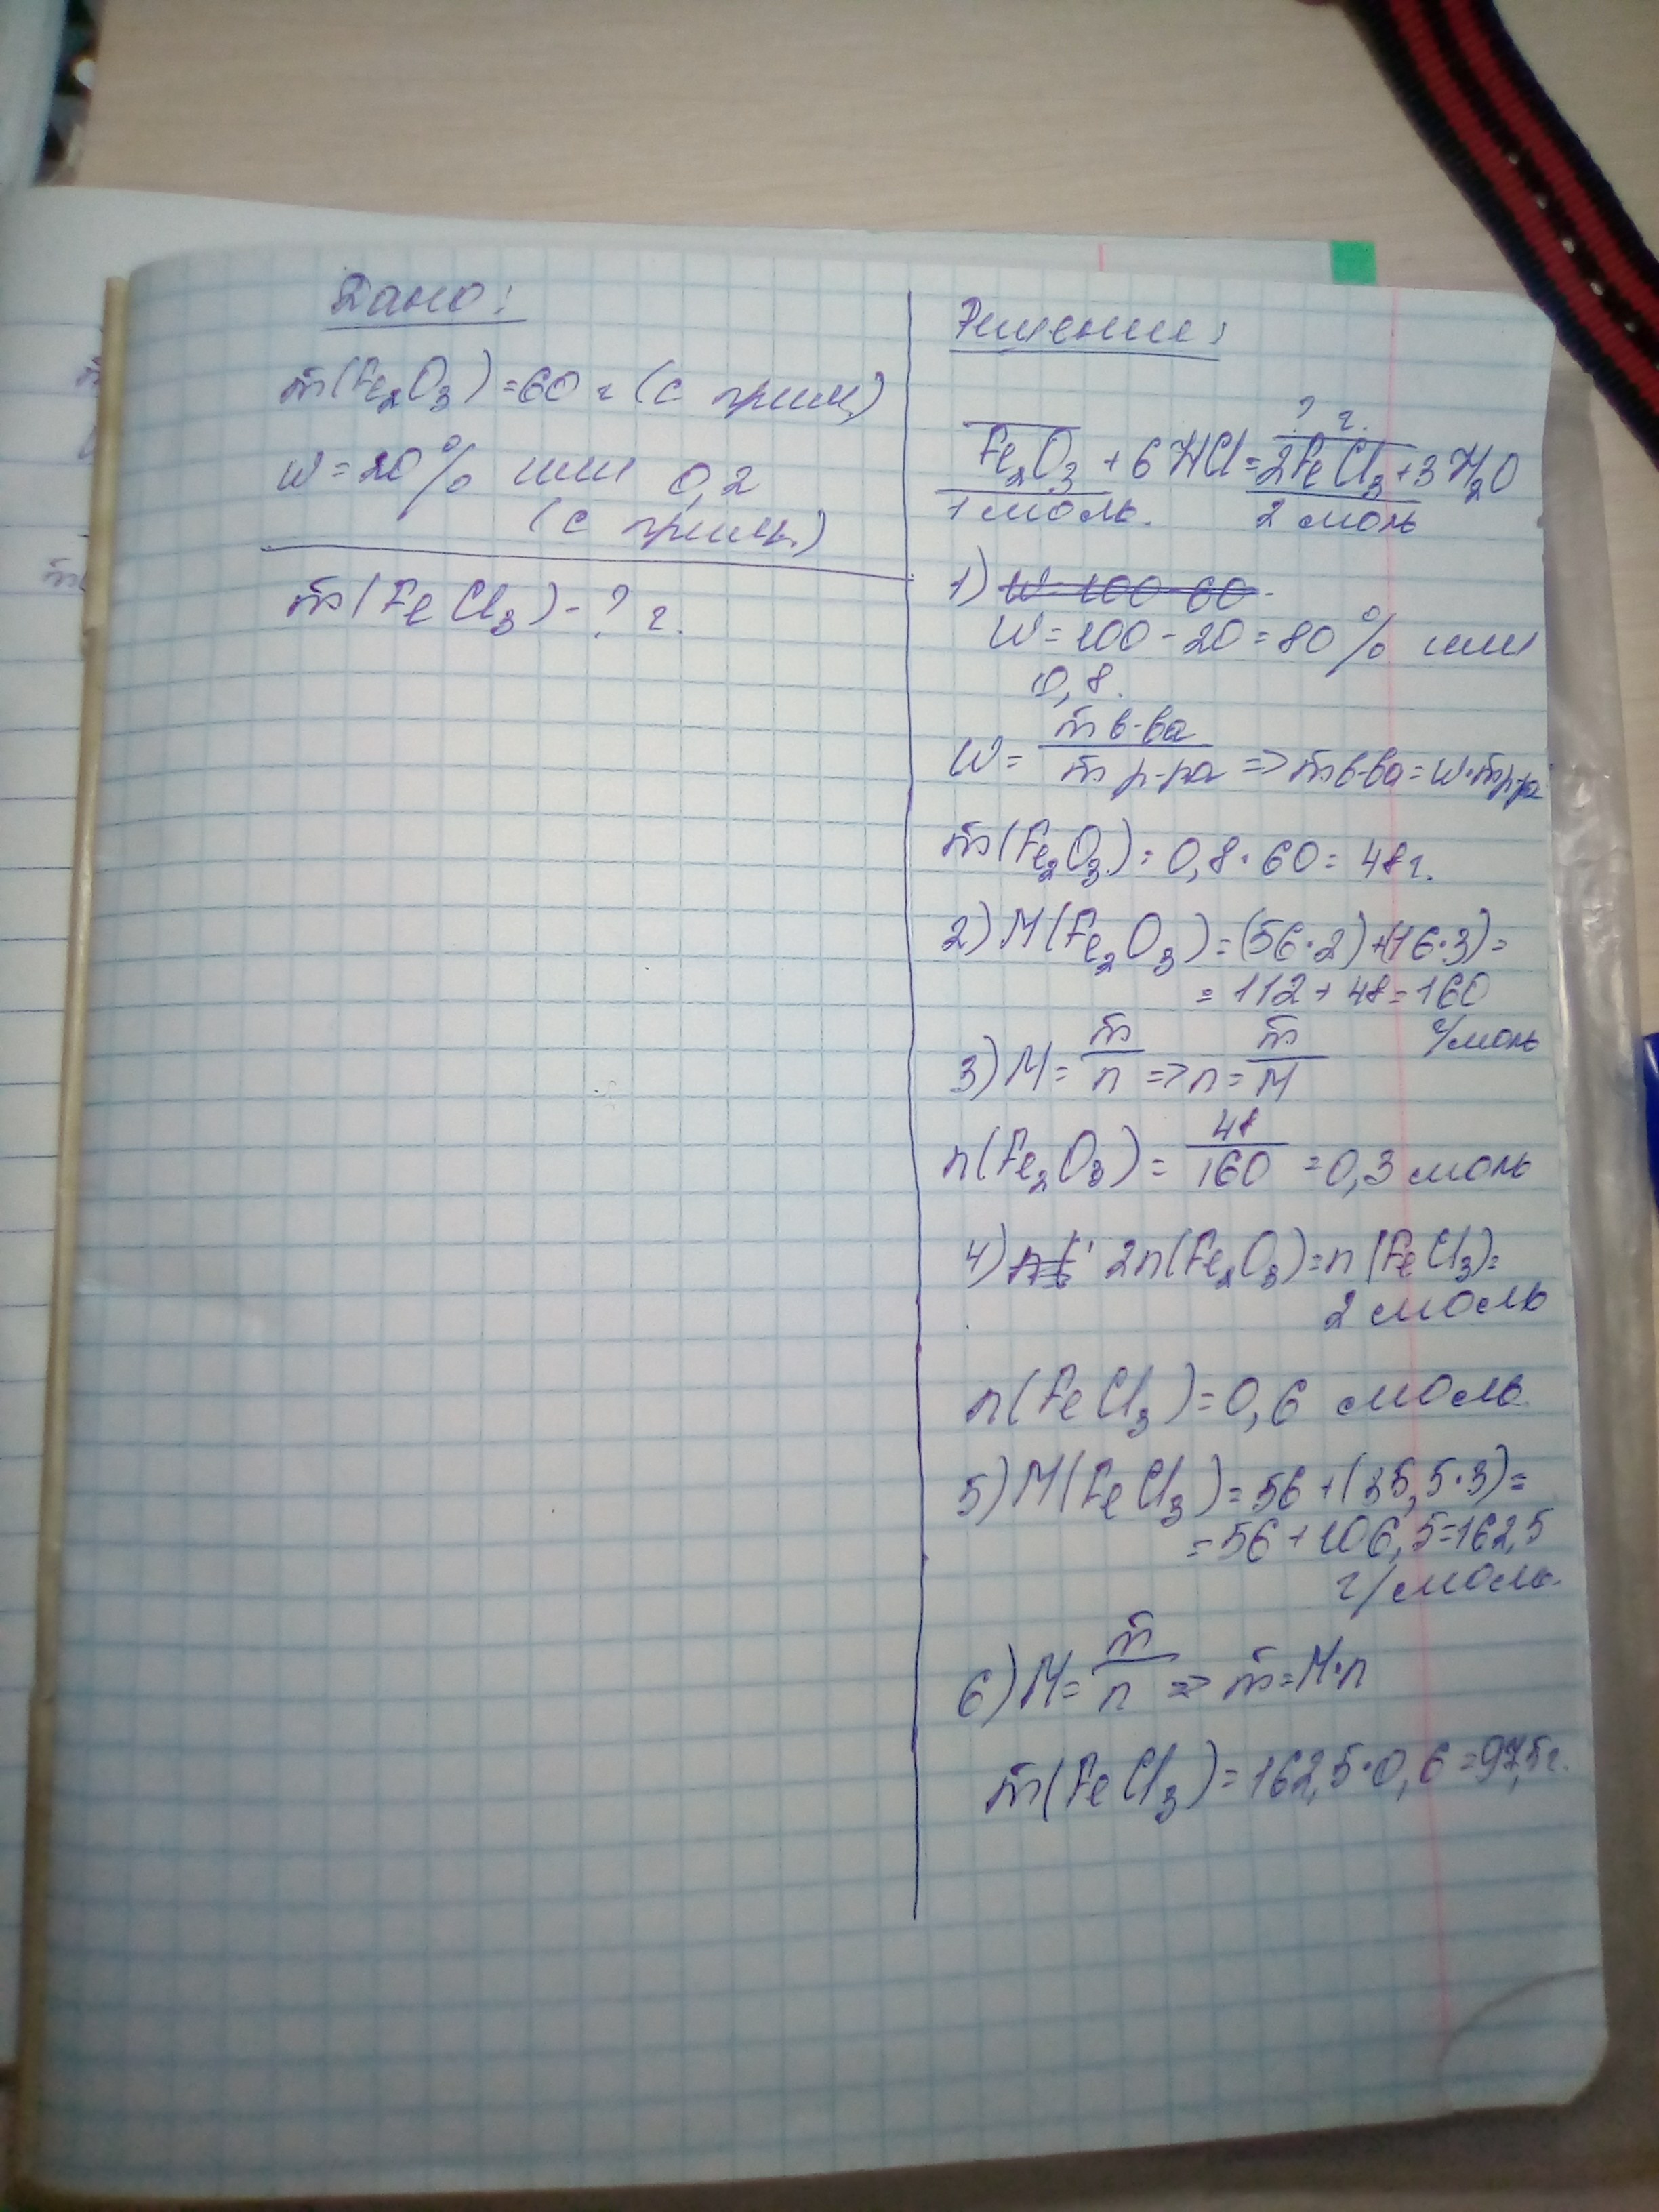 Дано:
m(Fe₂O₃)=60 г (с прим.)
W=20% или 0,2
(с прим.)
m(FeCl₃)-? г.
Решение:
? г.
Fe₂O₃+6HCl=2FeCl₃+3H₂O
1 моль. 2 моль
1) W=100-60
W=100-20=80% или
0,8.
W= m в-ва / m р-ра => m в-ва=W·m р-ра
m(Fe₂O₃)=0,8·60=48г.
2) M(Fe₂O₃)=(56·2)+(16·3)=
=112+48=160
г/моль
3) M= m/n => n= m/M
n(Fe₂O₃)= 48/160 =0,3 моль
4) 2n(Fe₂O₃)=n(FeCl₃)=
2 моль
n(FeCl₃)=0,6 моль
5) M(FeCl₃)=56+(35,5·3)=
=56+106,5=162,5
г/моль.
6) M= m/n => m=M·n
m(FeCl₃)=162,5·0,6=97,5г.